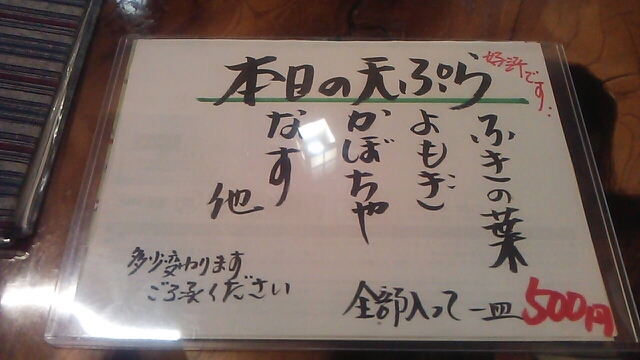 本日の天ぷら
好評です!
ふきの葉
よもぎ
かぼちゃ
なす
他
多少変わります
ご了承ください
全部入って一皿500円